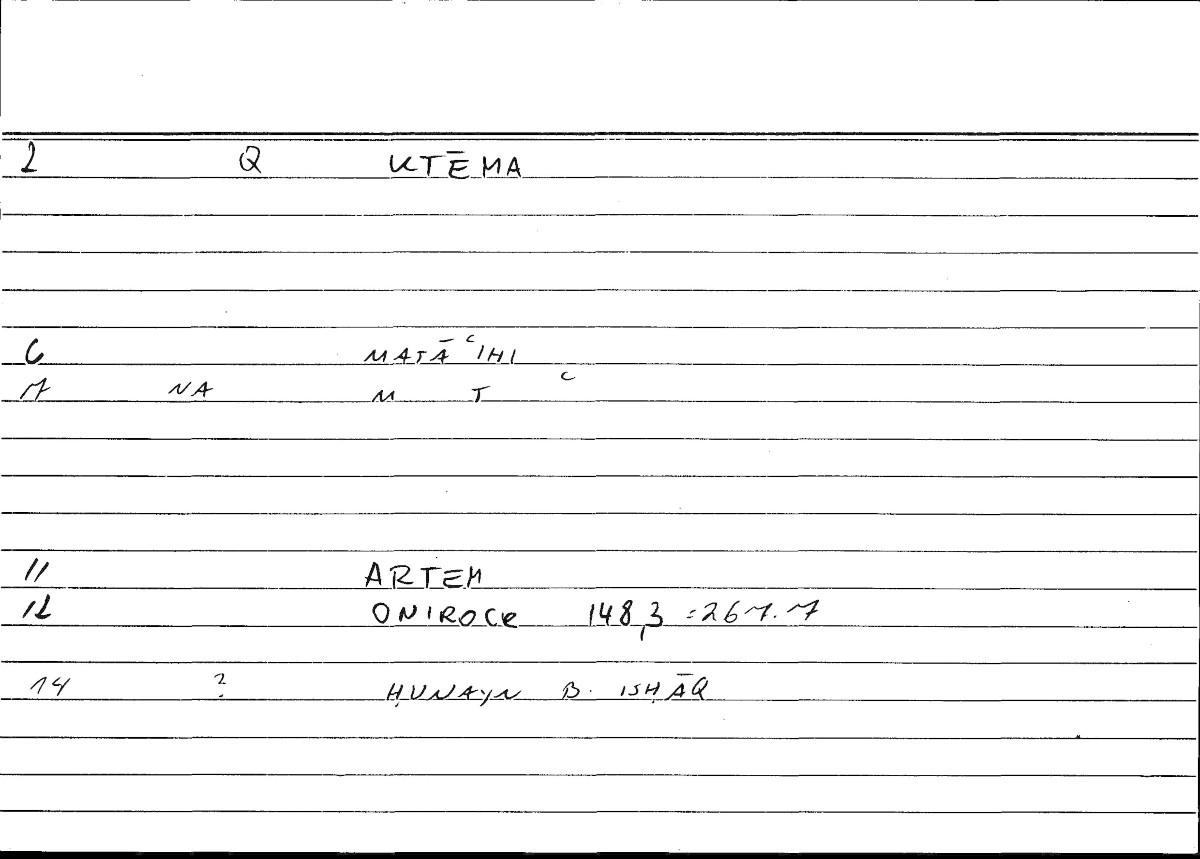 2 Q KTĒMA
6 MATĀʿIHI
7 NA M T ʿ
11 ARTEM
12 ONIROCR 148,3 =267.7
14 ? ḤUNAYN B. ISḤĀQ